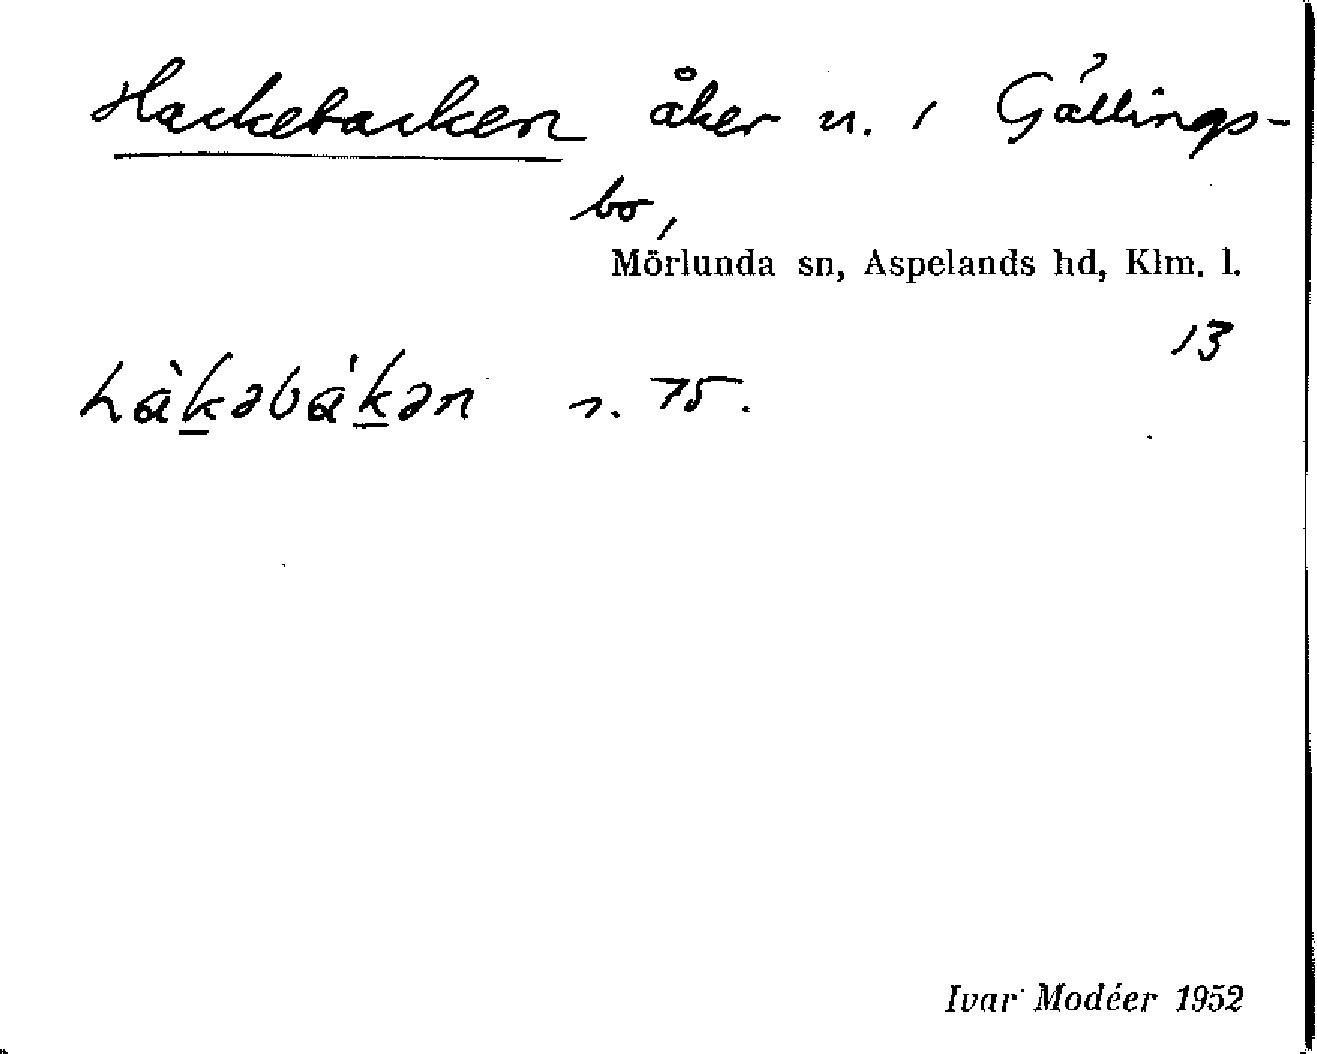 Hackebacken åker n. i Gållings-
bo,
Mörlunda sn, Aspelands hd, Klm. l.
13
hàk̲əbák̲ən n. 75.
Ivar Modéer 1952